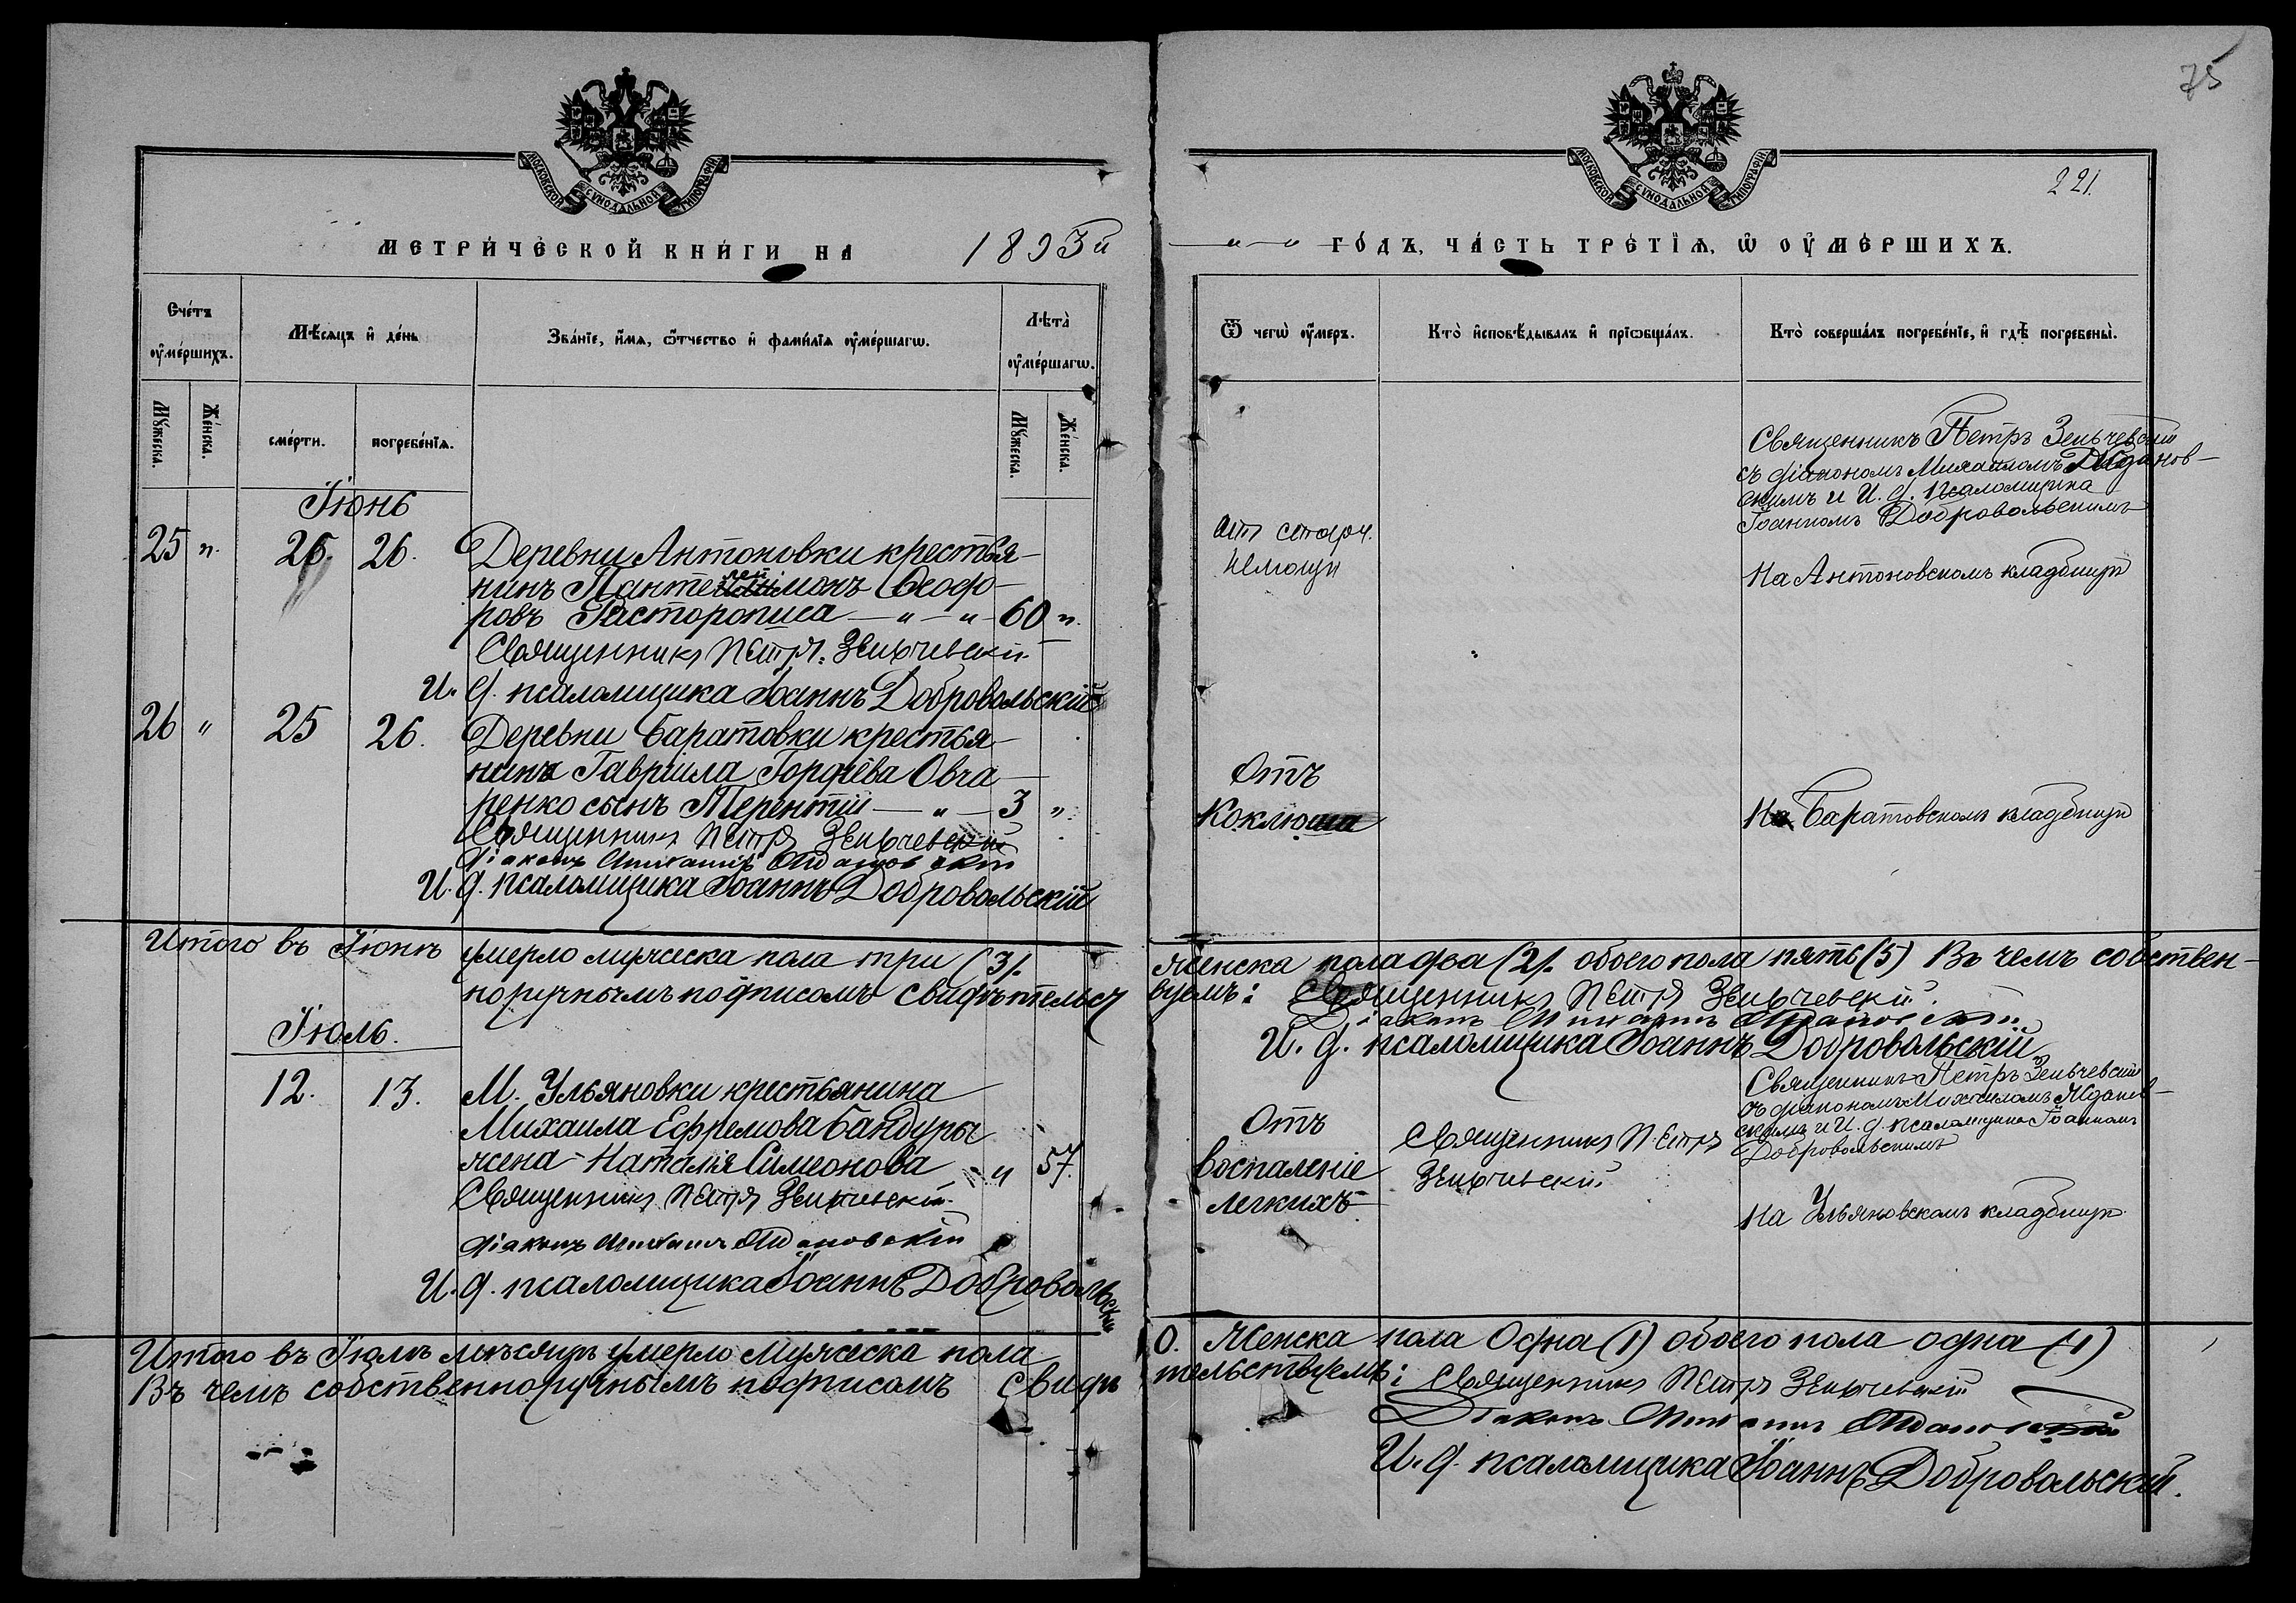 75
221.
МОСКОВСКОЙ СѴНОДАЛЬНОЙ ТИПОГРАФІИ
МОСКОВСКОЙ СѴНОДАЛЬНОЙ ТИПОГРАФІИ
МЕТРИ́ЧЕСКОЙ КНИ́ГИ НА 1893й
— " — " — ГО́ДЪ, ЧА́СТЬ ТРЕ́ТІѦ, Ѡ҆ ОУ҆МЕ́РШИХЪ.
Счéтъ оу҆мéршихъ.
Мѣ́сяцъ и҆ дéнь
Звáнїе, и҆́мѧ, ѻ҆́тчество и҆ фамѝлїѧ оу҆мéршагѡ.
Лѣтà оу҆мéршагѡ.
Мꙋ́жеска.
Жéнска.
смéрти.
погребéнїѧ.
Мꙋ́жеска.
Жéнска.
Ѿ чегѡ̀ оу҆́меръ.
Ктò и҆сповѣ́дывалъ и҆ прїѡбщáлъ.
Ктò совершáлъ погребéнїе, и҆ гдѣ̀ погребены̀.
Іюнь
25 " 25. 26. Деревни Антоновки крестья-
нинъ Пантелеимонъ Ѳеодо-
ровъ Расторописа — " — " — 60 "
Священникъ Петръ Зенькевскій
И. д. псаломщика Іоаннъ Добровольскій
Отъ старч.
немощи
Священникъ Петръ Зенькевскій
съ діакономъ Михаиломъ Ждановскимъ и И. д. псаломщика
Іоанномъ Добровольскимъ
На Антоновскомъ кладбищѣ
26 " 25 26. Деревни Баратовки крестья-
нина Гавріила Гордѣева Овча-
ренко сынъ Терентій — " — 3 "
Священникъ Петръ
Діаконъ Михаилъ Ждановскій
И. д. псаломщика Іоаннъ Добровольскій
Отъ
Коклюша
На Баратовскомъ кладбищѣ
Итого въ Іюнѣ умерло мужеска пола три (3).
женска пола два (2). обоего пола пять (5) Въ чемъ собствен-
норучнымъ подписомъ свидѣтельст
вуемъ: Священникъ Петръ
Діаконъ Михаилъ Ждановскій
И. д. псаломщика Іоаннъ Добровольскій
Іюль.
12. 13. М. Ульяновки крестьянина
Михаила Ефремова Бандуры
жена Наталія Симеонова — " 57.
Священникъ Петръ
Діаконъ Михаилъ Ждановскій
И. д. псаломщика Іоаннъ Добровольскій
Отъ
воспаленіе
легкихъ
Священникъ Петръ
Священникъ Петръ
съ діакономъ Михаиломъ Жданов-
скимъ и И. д. псаломщика Іоанномъ
Добровольскимъ
На Ульяновскомъ кладбищѣ
Итого въ Іюлѣ мѣсяцѣ умерло мужеска пола
0. Женска пола Одна (1) обоего пола одна (1)
Въ чемъ собственноручнымъ подписомъ свидѣ
тельствуемъ: Священникъ Петръ
Діаконъ Михаилъ Ждановскій
И. д. псаломщика Іоаннъ Добровольскій.